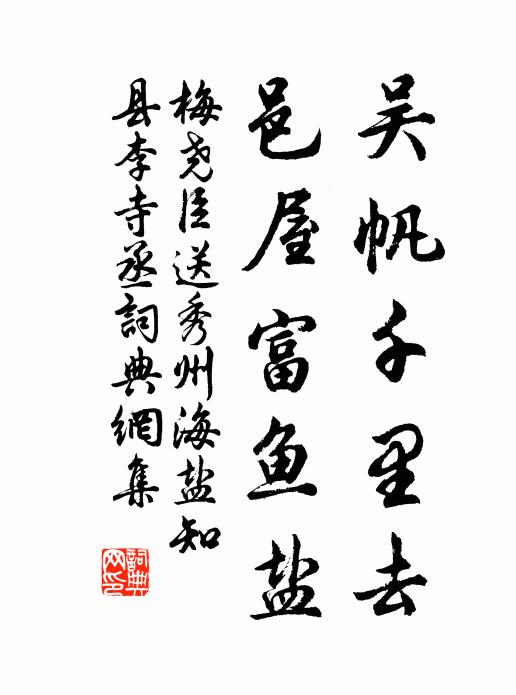 吴帆千里去
邑屋富鱼盐
梅尧臣送秀州海盐知
县李寺丞詞典網集
詞典网印